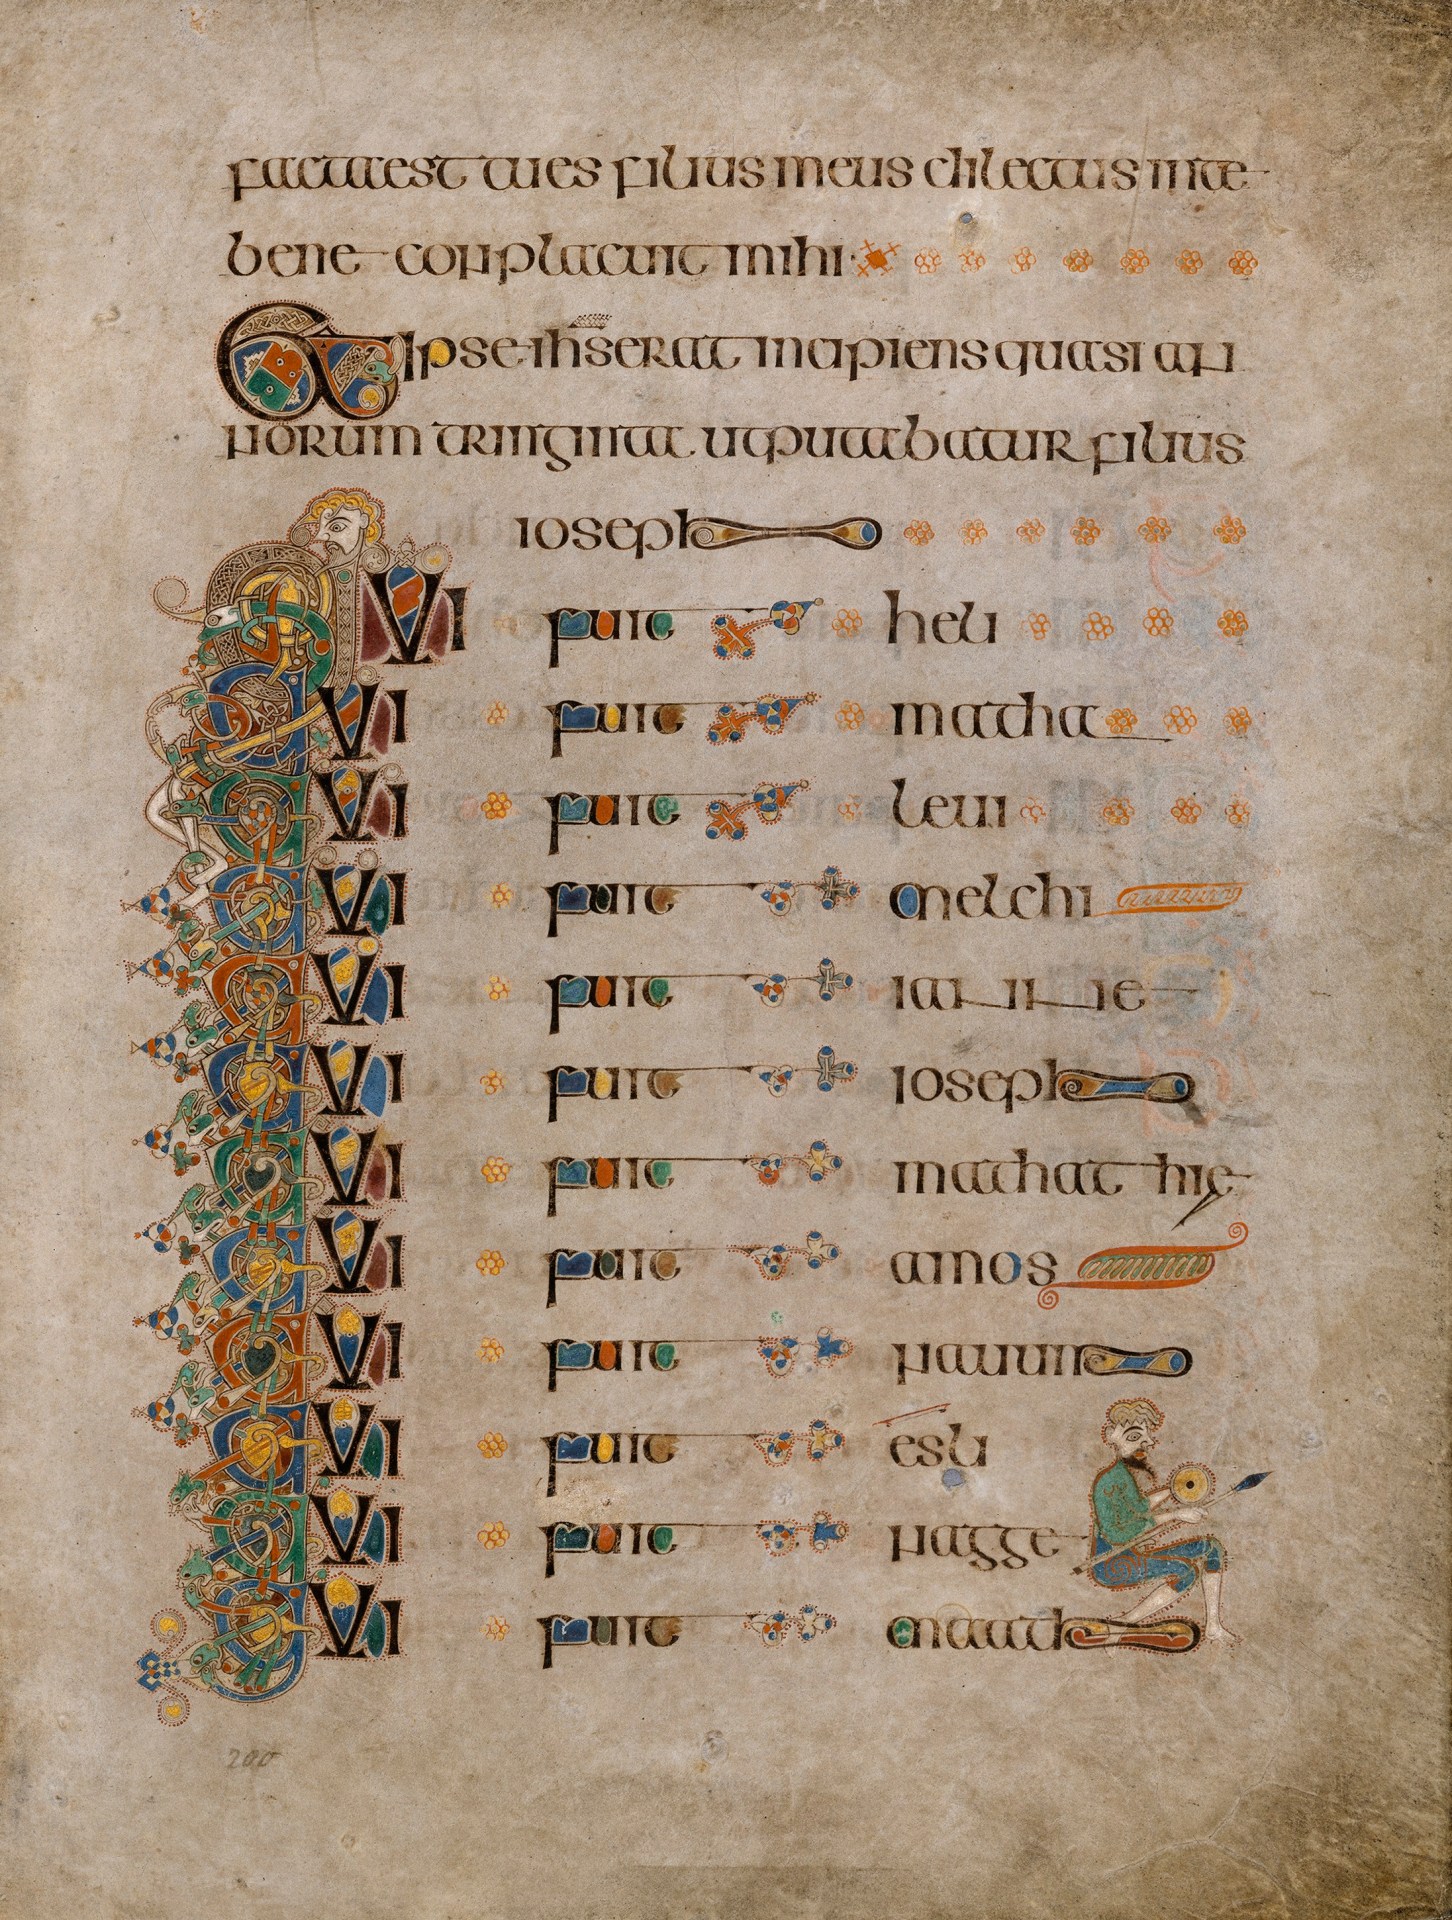 factaest tues filius meus dilectus inte
bene conplacuit mihi
Et ipse ihs erat incipiens quasi an
norum triginta. ut putabatur filius
ioseph
QVI fuit heli
QVI fuit matha
QVI fuit leui
QVI fuit melchi
QVI fuit iannae
QVI fuit ioseph
QVI fuit mathat hie
QVI fuit amos
QVI fuit nauum
QVI fuit esli
QVI fuit nagge
QVI fuit maath
200